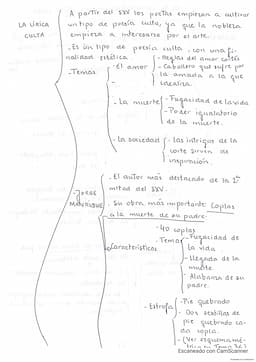 A partir del SXV los poetas empiezan a cultivar
un tipo de poesía culta, ya que la nobleza
empieza a interesarse por el arte.
LA LÍRICA
CULTA
- Es un tipo de poesía culta, con una fi-
nalidad estética
- Reglas del amor cortés
- Temas
- El amor
- Caballero que sufre por
la amada a la que
idealiza.
- La muerte
- Fugacidad de la vida
- Poder igualatorio
de la muerte.
- La sociedad
- las intrigas de la
corte sirven de
inspiración.
- JORGE
MANRIQUE
- El autor más destacado de la 2ª
mitad del SXV.
- Su obra más importante Coplas
a la muerte de su padre
- 40 coplas
- Características
- Tema
- Fugacidad de
la vida
- Llegada de la
muerte
- Alabanza de su
padre.
- Estrofa
- Pie quebrado
- Dos sextillas de
pie quebrado ca-
da copla.
- (Ver esquema mé-
trico en
Escaneado con CamScanner